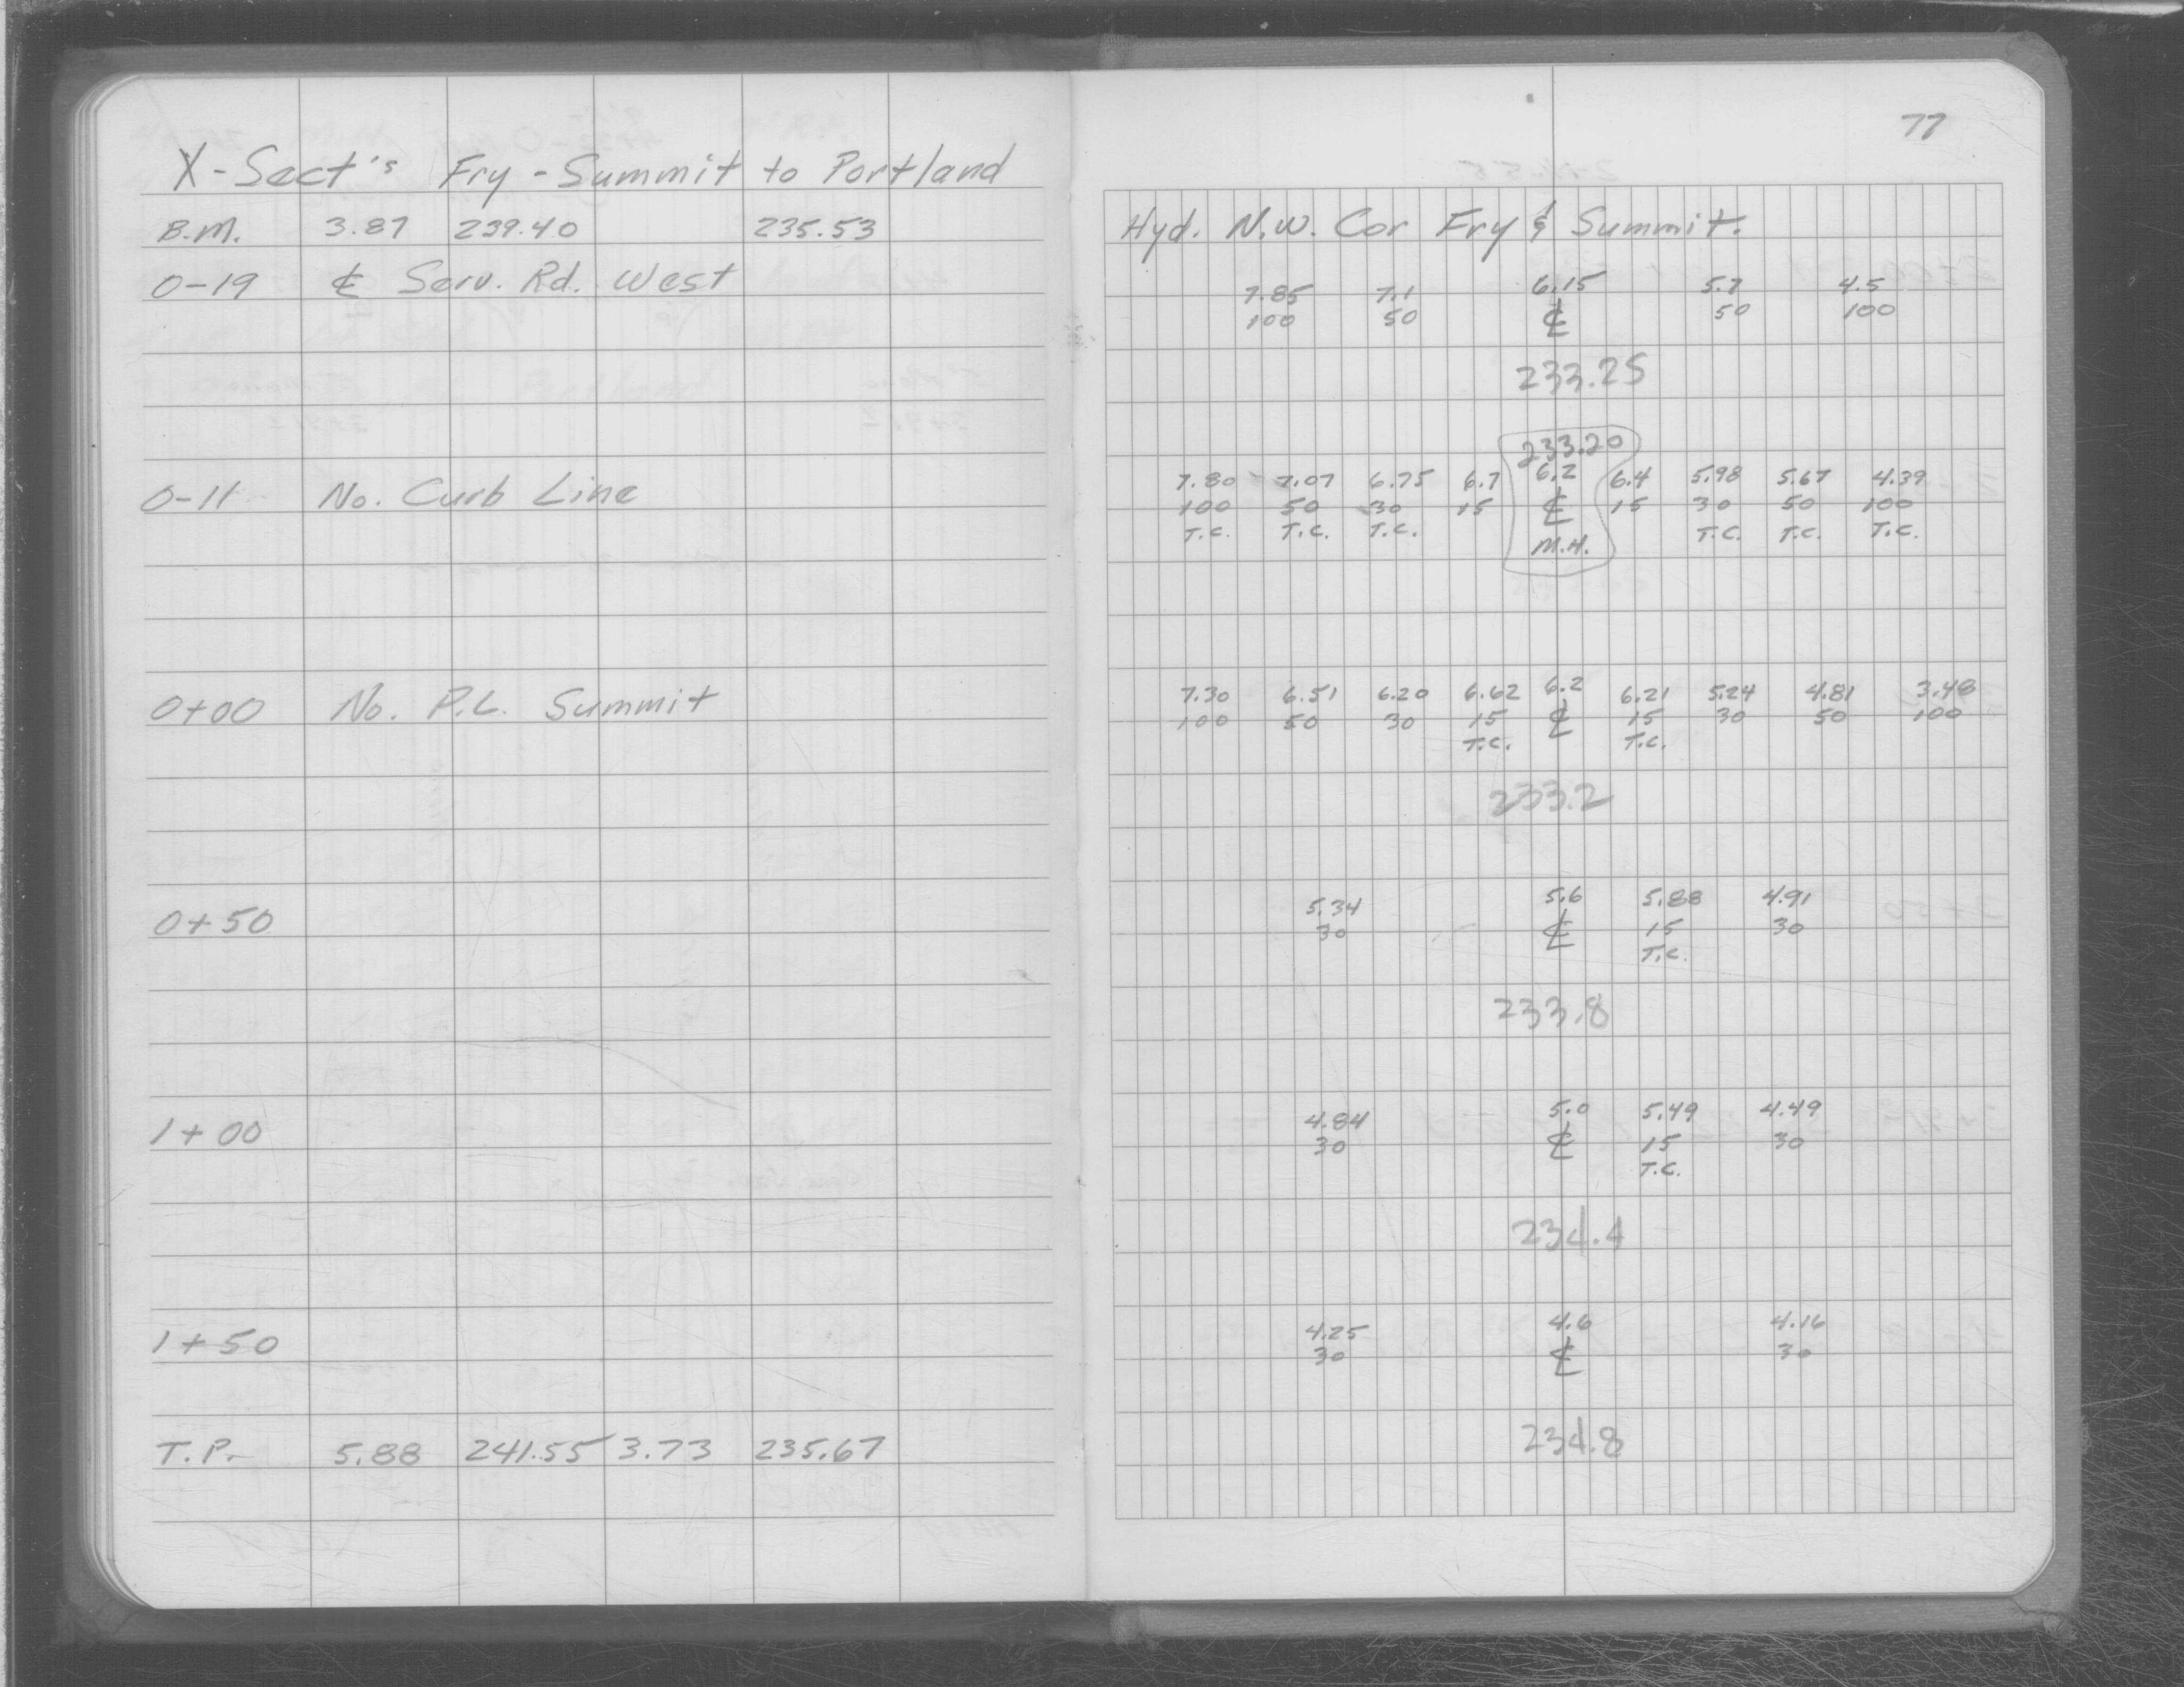 77
X-Sect's Fry - Summit to Portland
B.M. 3.87 239.40 235.53 Hyd. N.W. Cor Fry & Summit.
0-19 ℄ Serv. Rd. West 7.85 7.1 6.15 5.7 4.5
100 50 ℄ 50 100
233.25
233.20
0-11 No. Curb Line 7.80 7.07 6.75 6.7 6.2 6.4 5.98 5.67 4.39
100 50 30 15 ℄ 15 30 50 100
T.C. T.C. T.C. M.H. T.C. T.C. T.C.
0+00 No. P.L. Summit 7.30 6.51 6.20 6.62 6.2 6.21 5.24 4.81 3.48
100 50 30 15 ℄ 15 30 50 100
T.C. T.C.
233.2
0+50 5.34 5.6 5.88 4.91
30 ℄ 15 30
T.C.
233.8
1+00 4.84 5.0 5.49 4.49
30 ℄ 15 30
T.C.
234.4
1+50 4.25 4.6 4.16
30 ℄ 30
T.P. 5.88 241.55 3.73 235.67 234.8